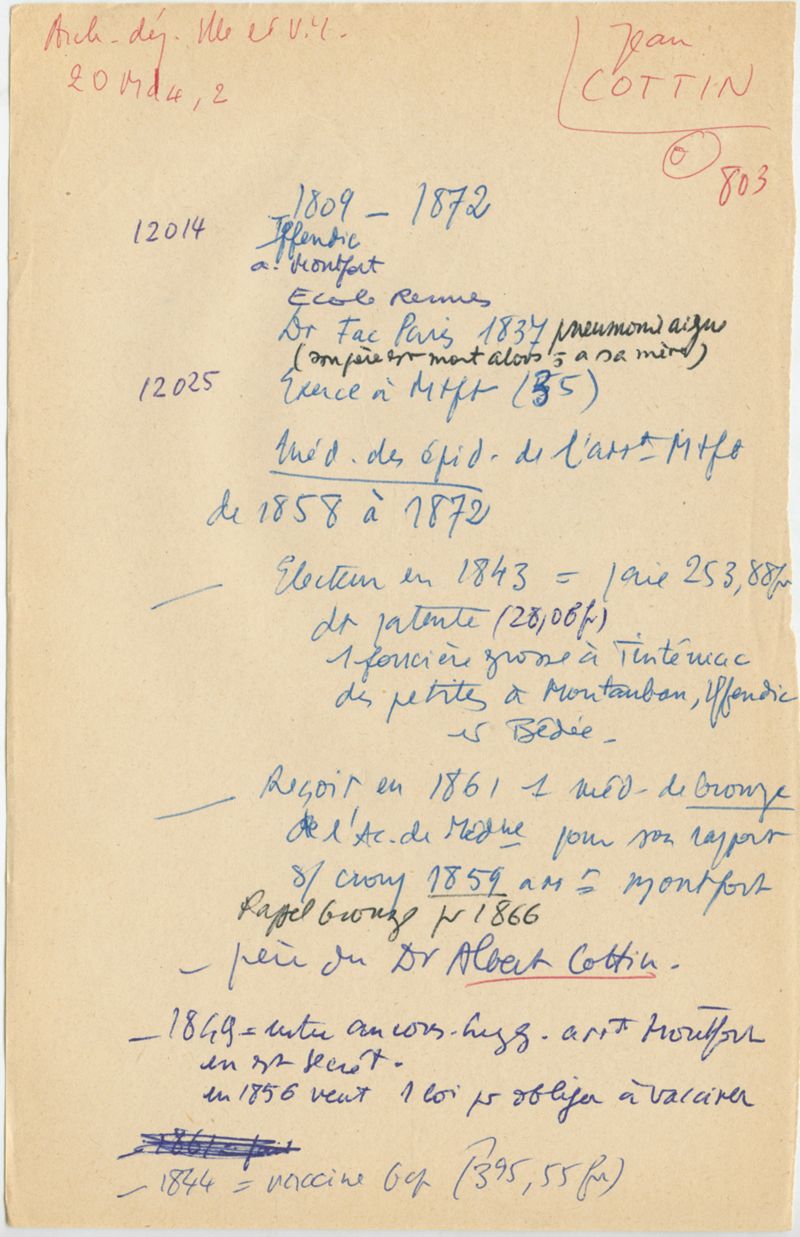 Arch. dép. Ille et Vil.
20 Md4, 2
Jean
COTTIN
803
1809 – 1872
12014
Iffendic
a. Montfort
Ecole Rennes
Dr Fac Paris 1837 pneumonie aigue
(son père est mort alors = a sa mère)
12025 Exerce à Mtft (35)
Méd. des épid. de l'arrt Mtft
de 1858 à 1872
— Electeur en 1843 = paie 253,88 fr
dt patente (28,08 fr)
1 foncière grosse à Tinténiac
des petites à Montauban, Iffendic
et Bédée –
— Reçoit en 1861 1 méd. de bronze
de l'Ac. de Médne pour son rapport
s/ croup 1859 arrt Montfort
Rappel bronze pr 1866
– père du Dr Albert Cottin.
– 1849 = entre au cons. hyg. arrt Montfort
en est secrét.
en 1856 veut 1 loi pr obliger à vacciner
– 1844 = vaccine bcp (395,55 fr)